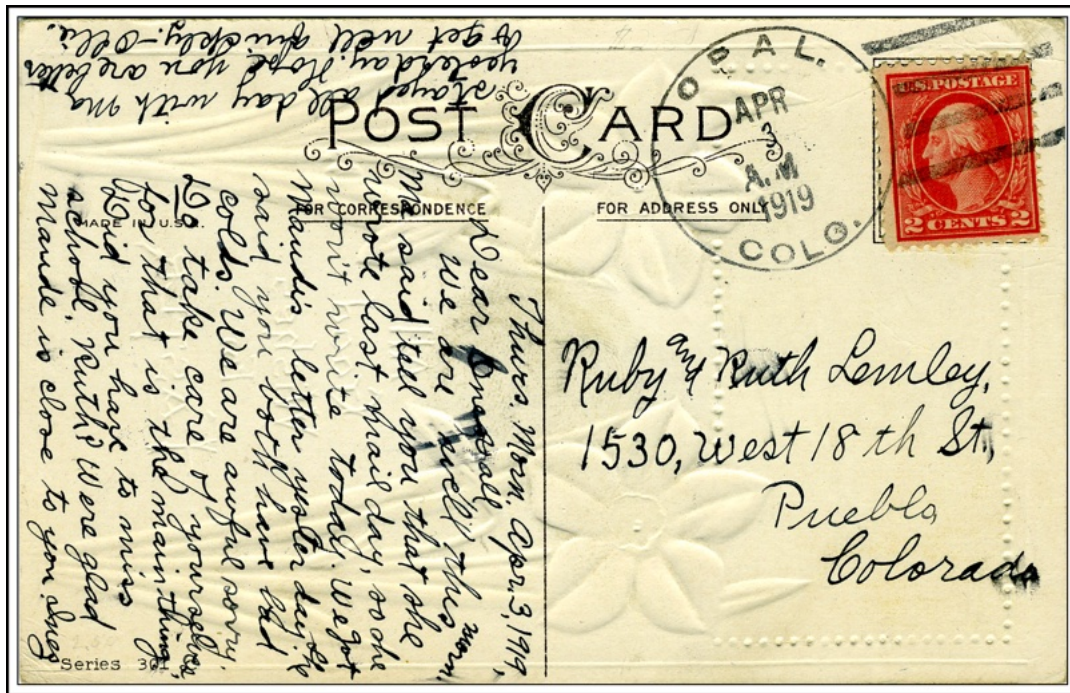 POST CARD
FOR CORRESPONDENCE
FOR ADDRESS ONLY
MADE IN U.S.A.
OPAL.
APR
3
A.M
1919
COLO.
U.S. POSTAGE
2 CENTS 2
Ruby and Ruth Lemley,
1530, West 18th St.,
Pueblo
Colorado
Thurs. Morn. Apr. 3, 1919,
Dear ones all
We are well this morn.
Ma said tell you that she
wrote last mail day, so she
won't write today. We got
Maud's letter yesterday. She
said you both have bad
colds. We are awful sorry.
Do take care of yourselves,
for that is the main thing.
Did you have to miss
school Ruth? Were glad
Maude is close to you. Inez
stayed all day with ma
yesterday. Hope you are better
& get well quickly. - Ollie.
Series 301